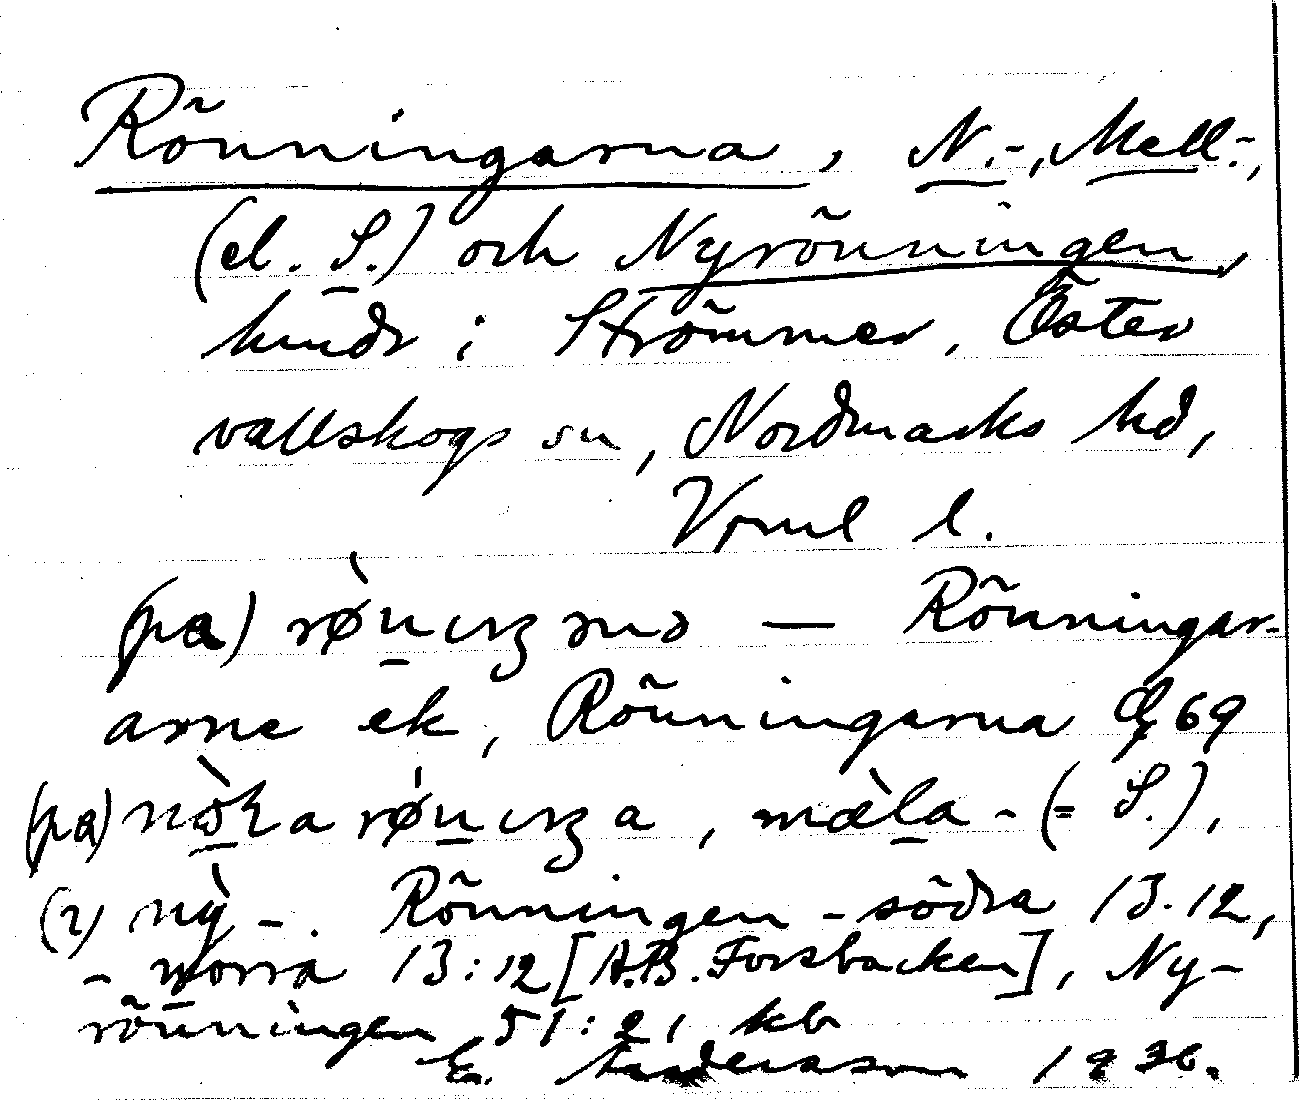 Rönningarna, N.-, Mell.-,
(el. S.) och Nyrönningen,
hmdr i Strömmer, Öster
vallskogs sn, Nordmarks hd,
Vrml l.
(pa) — Rönningar-
arne ek, Rönningarna 69
(pa) , mæla - (= S.),
(i) ny - . Rönningen - södra 13.12,
- norra 13:12 [A.B. Forsbacken], Ny-
rönningen 51:21 kb
E. Andersson 1936.